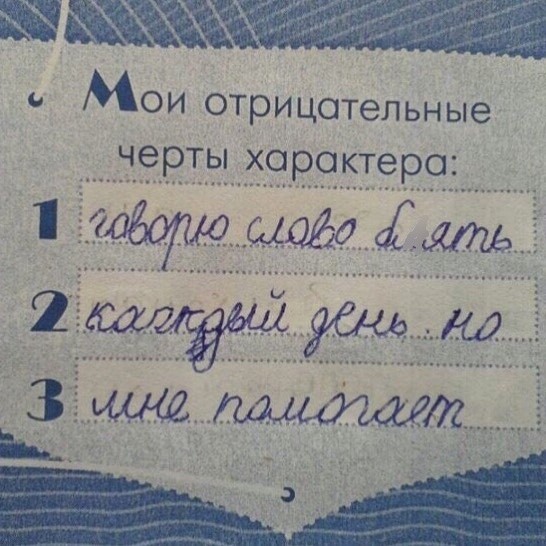 Мои отрицательные
черты характера:
1 говорю слово б ять
2 каждый день. но
3 мне помогает